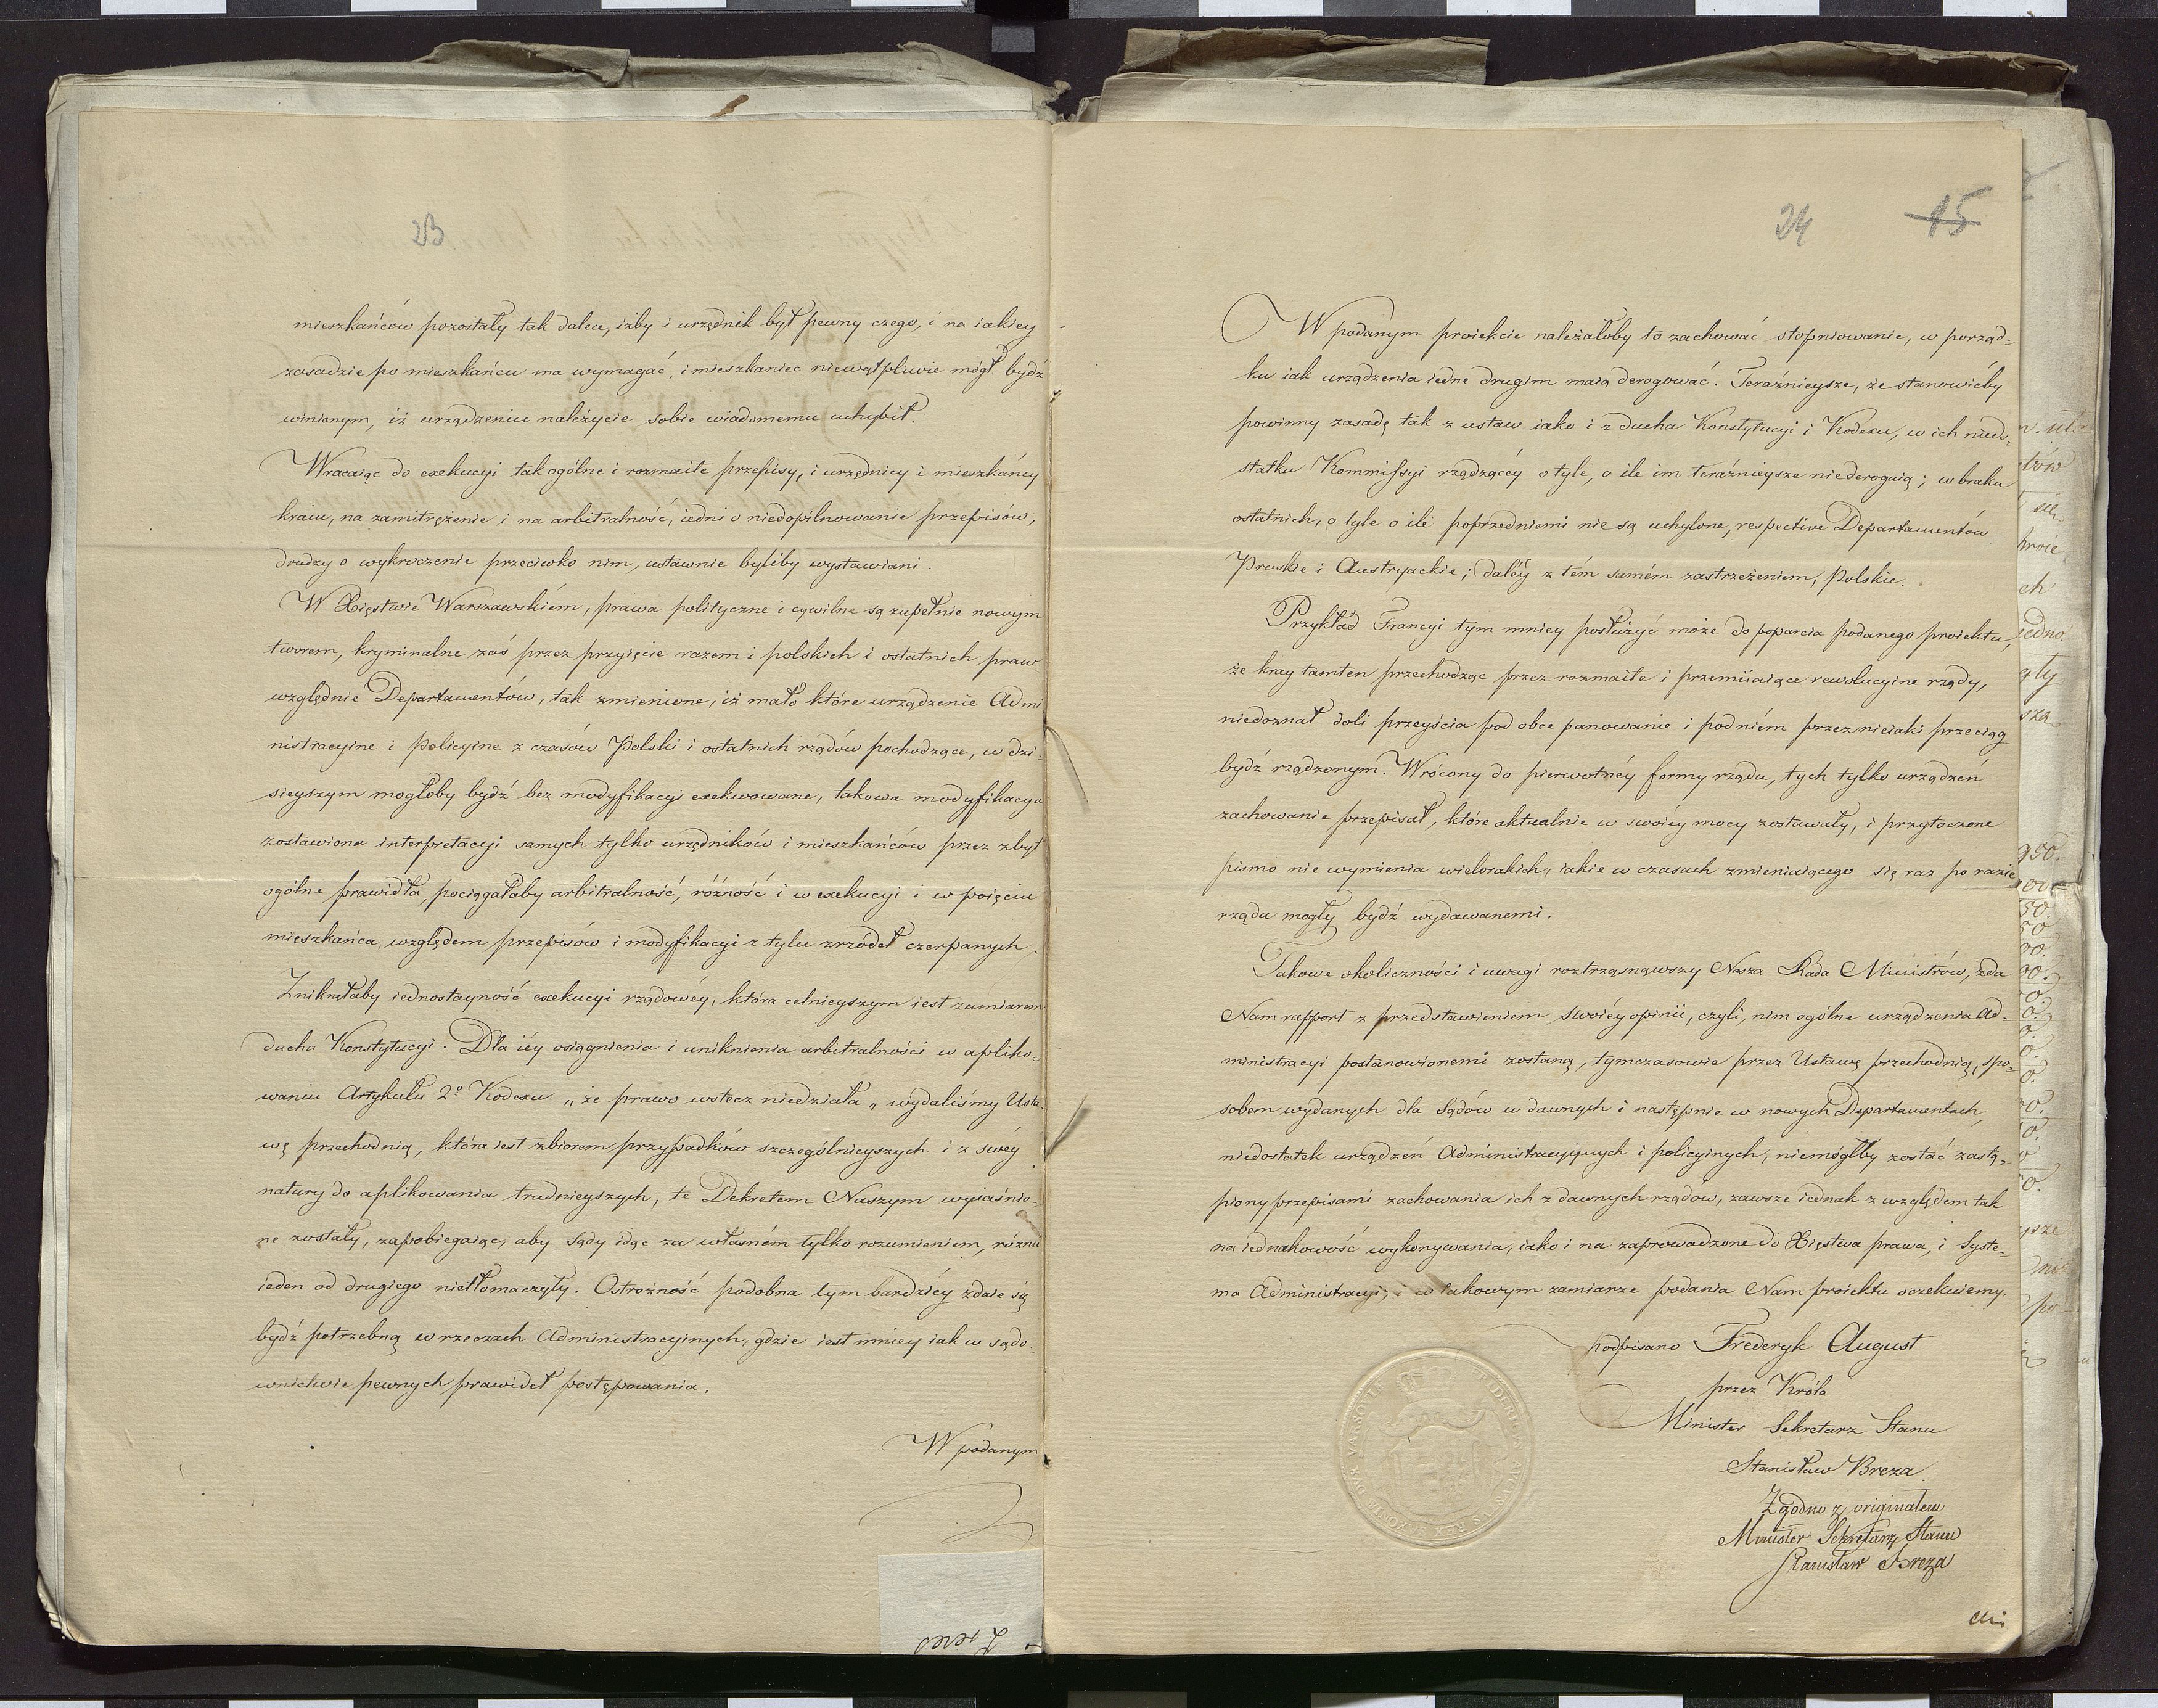 23
mieszkańców pozostały tak dalece, iżby i urzędnik był pewny czego, i na iakiey
zasadzie po mieszkańcu ma wymagać, i mieszkaniec niewątpliwie mógł bydź
winionym, iż urządzeniu należycie sobie wiadomemu uchybił.
Wracaiąc do exekucyi tak ogólne i rozmaite przepisy, i urzędnicy i mieszkańcy
kraiu, na zamitrężenie i na arbitralność, iedni o niedopilnowanie przepisów,
drudzy o wykroczenie przeciwko nim, ustawnie byliby wystawiani.
W Xięstwie Warszawskiém, prawa polityczne i cywilne są zupełnie nowym
tworem, kryminalne zaś przez przyięcie razem i polskich i ostatnich praw
względnie Departamentów, tak zmienione, iż mało które urządzenie Admi
nistracyine i Policyine z czasów Polski i ostatnich rządów pochodzące, w dzi
sieyszym mogłoby bydź bez modyfikacyi exekwowane, takowa modyfikacya
zostawiona interpretacyi samych tylko urzędników i mieszkańców przez zbyt
ogólne prawidła, pociągałaby arbitralność, różność i w exekucyi i w poięciu
mieszkańca, względem przepisów i modyfikacyi z tylu zrzódeł czerpanych.
Zniknęłaby iednostayność exekucyi rządowéy, która celnieyszym iest zamiarem
ducha Konstytucyi. Dla iéy osiągnienia i uniknienia arbitralności w apliko-
waniu Artykułu 2º Kodexu „że prawo wstecz niedziała„ wydaliśmy Usta-
wę przechodnią, która iest zbiorem przypadków szczególnieyszych i z swéy
natury do aplikowania trudnieyszych, te Dekretem Naszym wyiaśnio-
ne zostały, zapobiegaiąc, aby Sądy idąc za własném tylko rozumieniem, różnie
ieden od drugiego nietłomaczyły. Ostrożność podobna tym bardziéy zdaie się
bydź potrzebną w rzeczach Administracyinych, gdzie iest mniey iak w sądo-
wnictwie pewnych prawideł postępowania.
W podanym
24 15
W podanym proiekcie należałoby to zachować stopniowanie, w porząd-
ku iak urządzenia iedne drugim maią derogować. Teraźnieysze, że stanowićby
powinny zasadę tak z ustaw iako i z ducha Konstytucyi i Kodexu, w ich niedo-
statku Kommissyi rządzącéy o tyle, o ile im teraźnieysze niederoguią; w braku
ostatnich, o tyle o ile poprzedniemi nie są uchylone, respective Departamentów
Pruskie i Austryackie; daléy z tém samém zastrzeżeniem, Polskie.
Przykład Francyi tym mniey posłużyć może do poparcia podanego proiektu,
że kray tamten przechodząc przez rozmaite i przemiiaiące rewolucyine rządy,
niedoznał doli przeyścia pod obce panowanie i pod niém przez nieiaki przeciąg
bydź rządzonym. Wrócony do pierwotnéy formy rządu, tych tylko urządzeń
zachowanie przepisał, które aktualnie w swoiey mocy zostawały, i przytoczone
pismo nie wymienia wielorakich, iakie w czasach zmieniaiącego się raz po razie
rządu mogły bydź wydawanemi.
Takowe okoliczności i uwagi roztrząsnąwszy Nasza Rada Ministrów, zda
Nam rapport z przedstawieniem swoiéy opinii, czyli, nim ogólne urządzenia Ad-
ministracyi postanowionemi zostaną, tymczasowie przez Ustawę przechodnią, spo-
sobem wydanych dla Sądów w dawnych i następnie w nowych Departamentach,
niedostatek urządzeń Administracyjnych i policyinych, niemógłby zostać zastą-
piony przepisami zachowania ich z dawnych rządów, zawsze iednak z względem tak
na iednakowość wykonywania, iako i na zaprowadzone do Xięstwa prawa, i Syste-
ma Administracyi; i w takowym zamiarze podania Nam proiektu oczekuiemy.
podpisano Frederyk August
przez Króla
Minister Sekretarz Stanu
Stanisław Breza.
Zgodno z originałem
Minister Sekretarz Stanu
Stanisław Breza